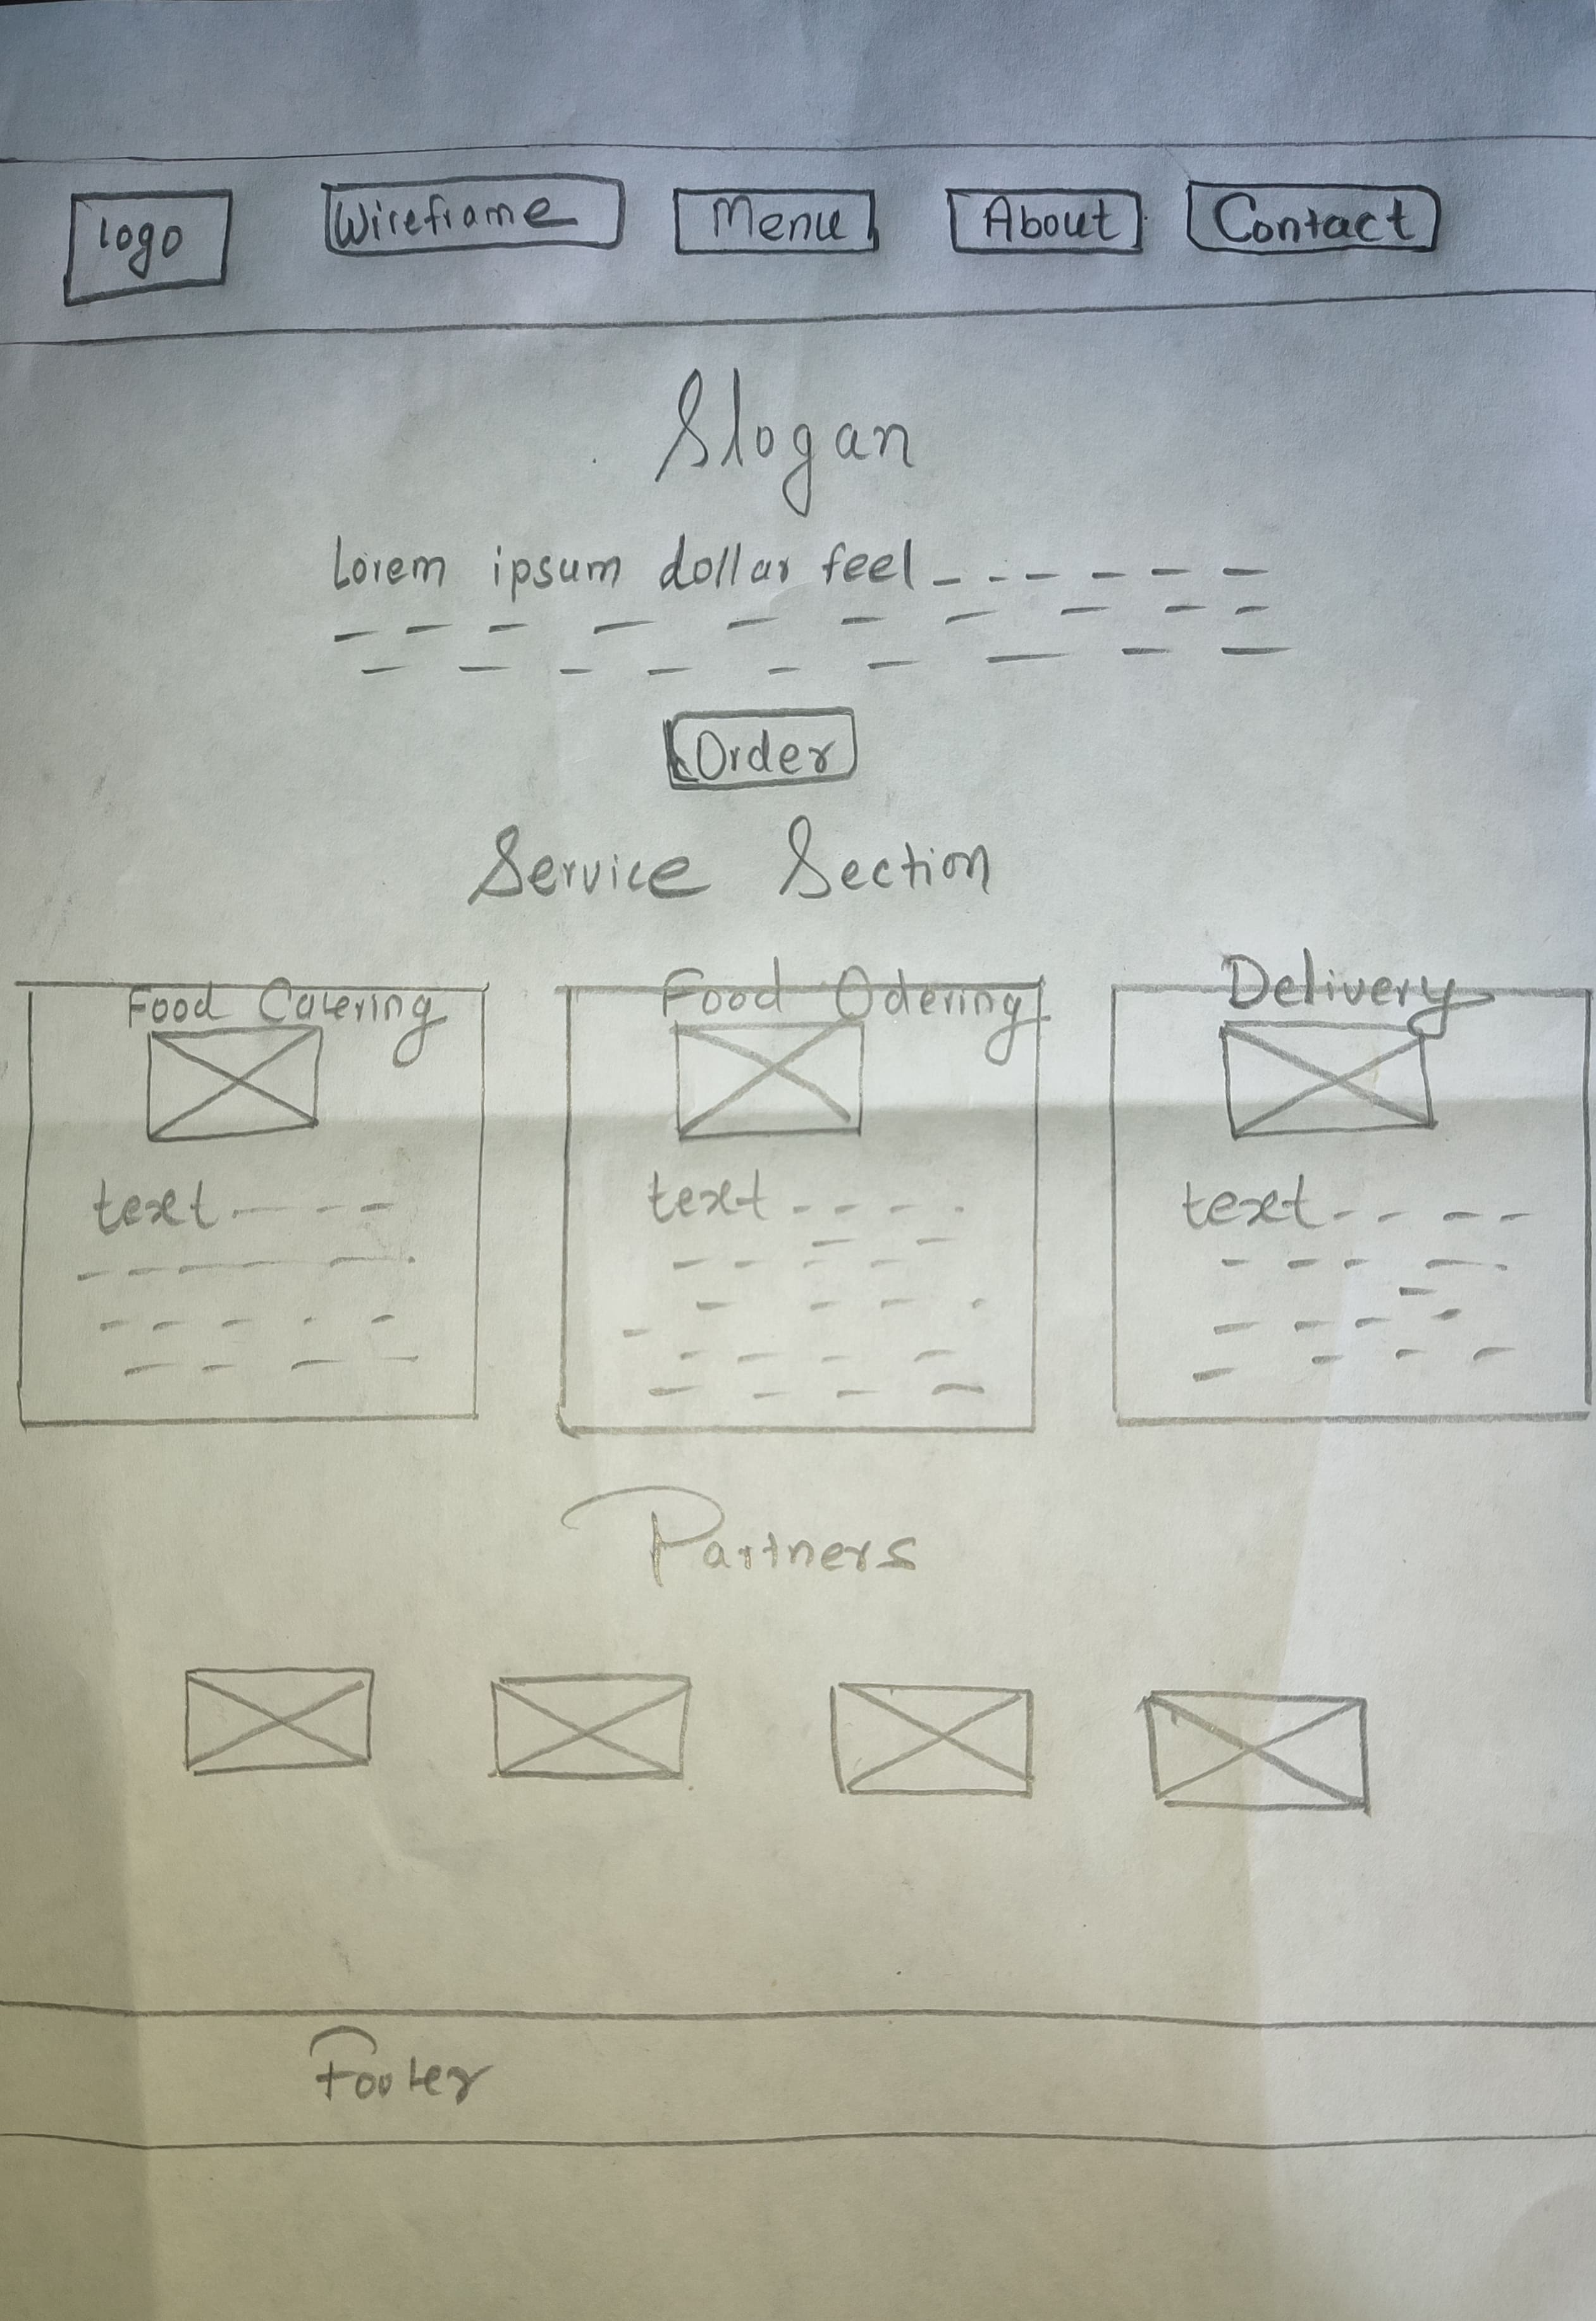 logo Wireframe Menu About Contact
Slogan
Lorem ipsum dollar feel
Order
Service Section
Food Catering Food Odering Delivery
text text text
Partners
Footer